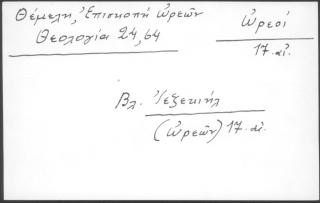 Θέμελη, Ἐπισκοπή Ὠρεῶν
Θεολογία 24,64
Ὠρεοί
17. αἰ.
Βλ. Ἰεζεκιήλ
(Ὠρεῶν) 17. αἰ.